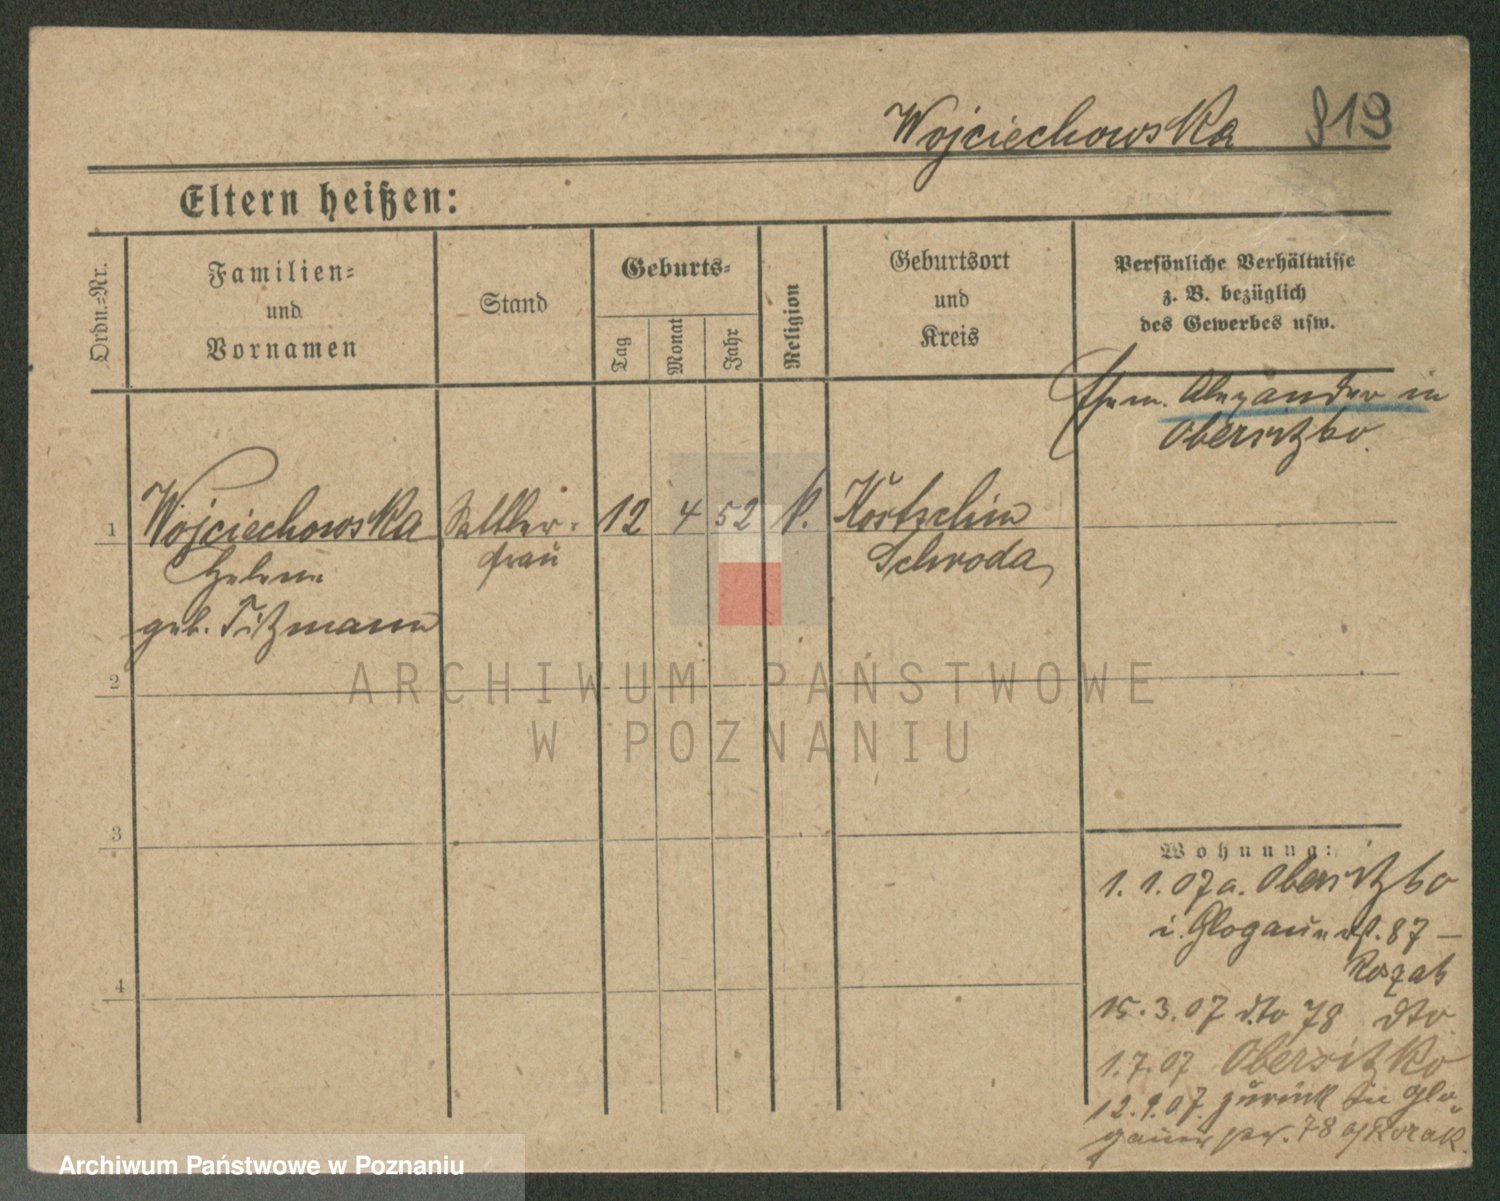 Wojciechowska 819
Eltern heißen:
Ordn.-Nr.
Familien-
und
Vornamen
Stand
Geburts-
Tag
Monat
Jahr
Religion
Geburtsort
und
Kreis
Persönliche Verhältnisse
z. B. bezüglich
des Gewerbes usw.
Ehem. Alexander in
Obersitzko.
1 Wojciechowska Sattler- 12 4 52 k. Kostschin
Helene frau Schroda
geb. Titzmann
2
3
4
Wohnung:
1. 1. 07 a. Obersitzko
i. Glogauerst. 87 –
15. 3. 07 dto 78 dto.
1. 7. 07 Obersitzko
12. 9. 07 zurück Glo-
gauer 78
ARCHIWUM PAŃSTWOWE
W POZNANIU
Archiwum Państwowe w Poznaniu